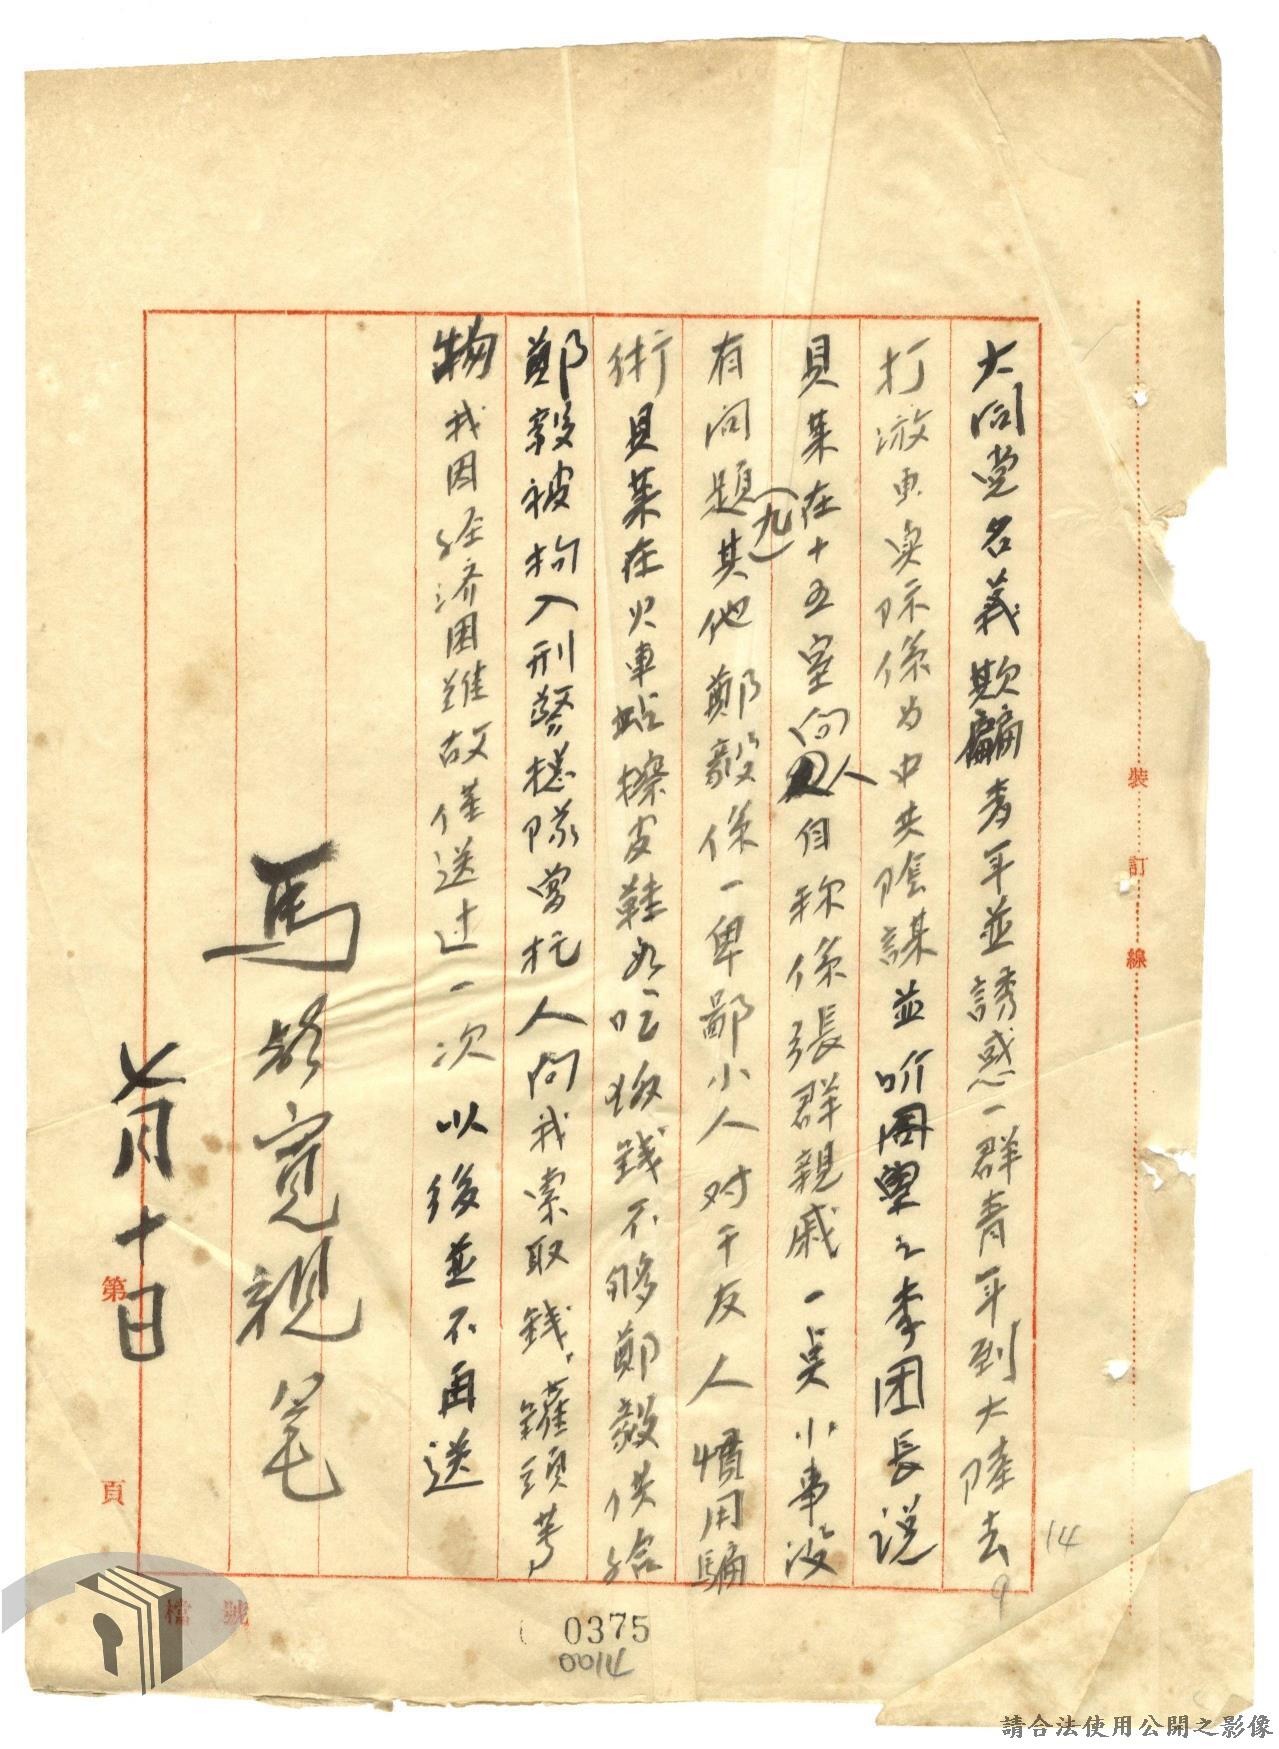 大同党名義欺騙青年並誘惑一群青年到大陸去
打游击实际係为中共陰謀並听同案之李团長说
貝某在十五室向人自称係張群親戚一点小事没
有问题(九)其他鄭毅係一卑鄙小人对于友人慣用騙
術貝某在火車站擦皮鞋为吃飯錢不够鄭毅供给
鄭毅被拘入刑警总隊曾托人向我索取錢、罐頭等
物我因经济困難故僅送过一次以後並不再送
馬 寬親笔
七月十日
裝訂線
第 頁
檔 號
14
9
0375
0014
請合法使用公開之影像